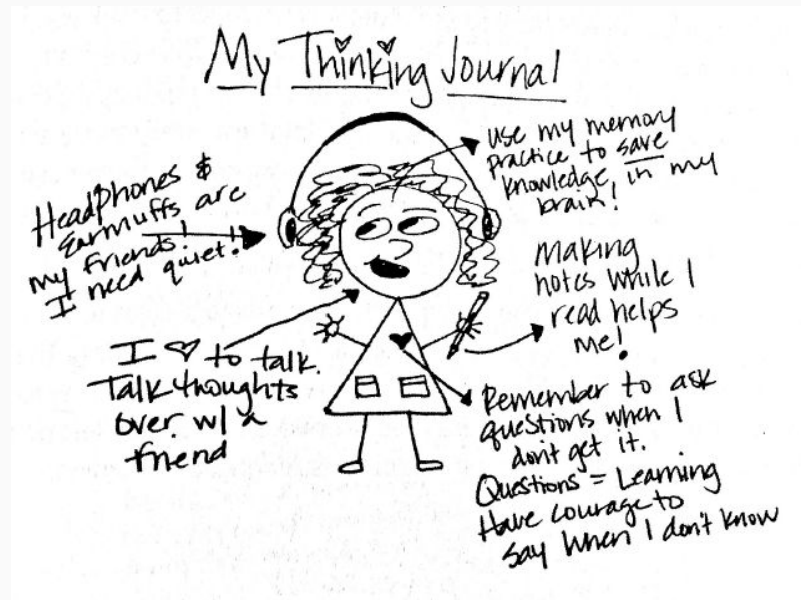 My Thinking Journal
Headphones &
Earmuffs are
my friends!
I need quiet!
use my memory
practice to save
knowledge in my
brain!
Making
notes while I
read helps
me!
I ♡ to talk.
Talk thoughts
over w/ a
friend
Remember to ask
questions when I
don't get it.
Questions = Learning
Have courage to
say when I don't know